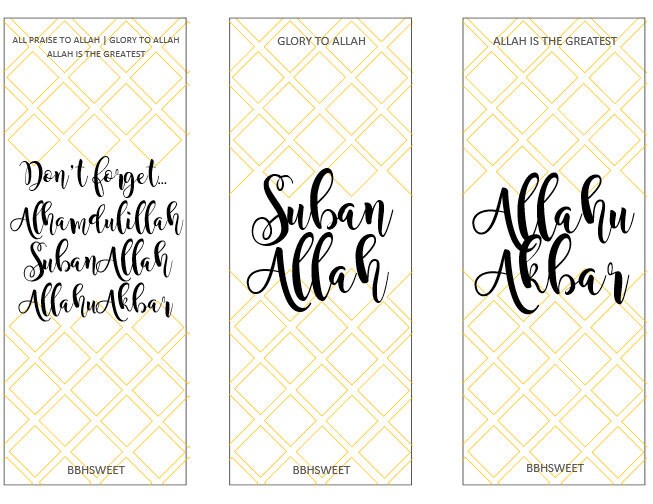 ALL PRAISE TO ALLAH | GLORY TO ALLAH
ALLAH IS THE GREATEST
Don't forget...
Alhamdulillah
SubanAllah
AllahuAkbar
BBHSWEET
GLORY TO ALLAH
Suban
Allah
BBHSWEET
ALLAH IS THE GREATEST
Allahu
Akbar
BBHSWEET